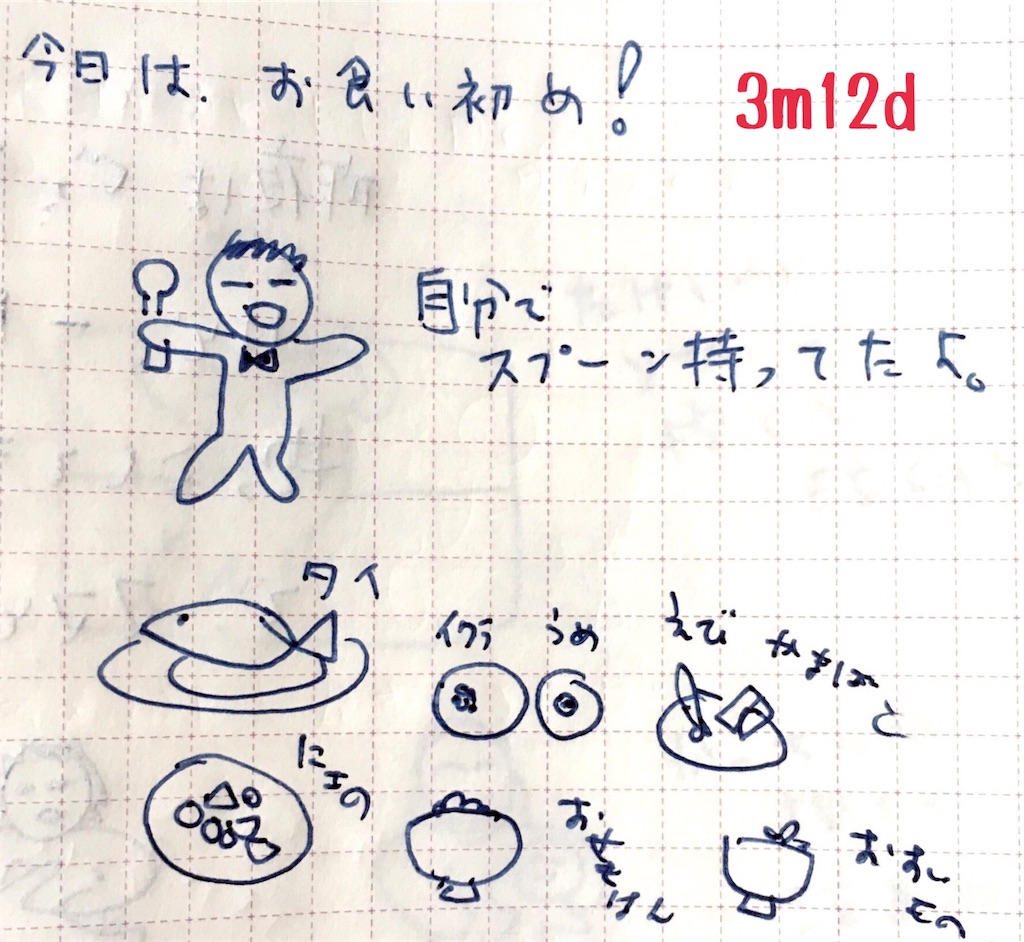 今日は、お食い初め!
3m12d
自分で
スプーン持ってたよ。
タイ
イクラ
うめ
えび
かまぼこ
にもの
おせきはん
おすいもの